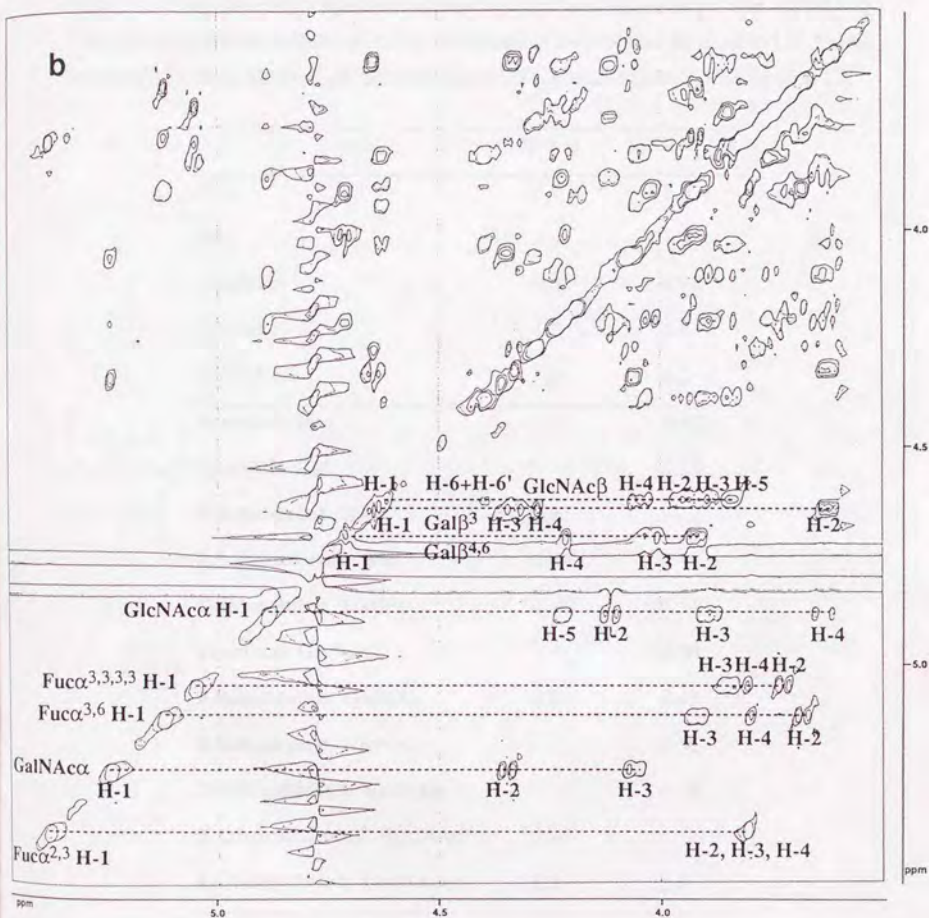 b
4.0
4.5
H-1 H-6+H-6' GlcNAcβ H-4 H-2 H-3 H-5
H-1 Galβ3 H-3 H-4 H-2
Galβ4,6
H-1 H-4 H-3 H-2
GlcNAcα H-1
H-5 H-2 H-3 H-4
5.0
H-3 H-4 H-2
Fucα3,3,3,3 H-1
Fucα3,6 H-1
H-3 H-4 H-2
GalNAcα
H-1 H-2 H-3
Fucα2,3 H-1
H-2, H-3, H-4
ppm
ppm 5.0 4.5 4.0